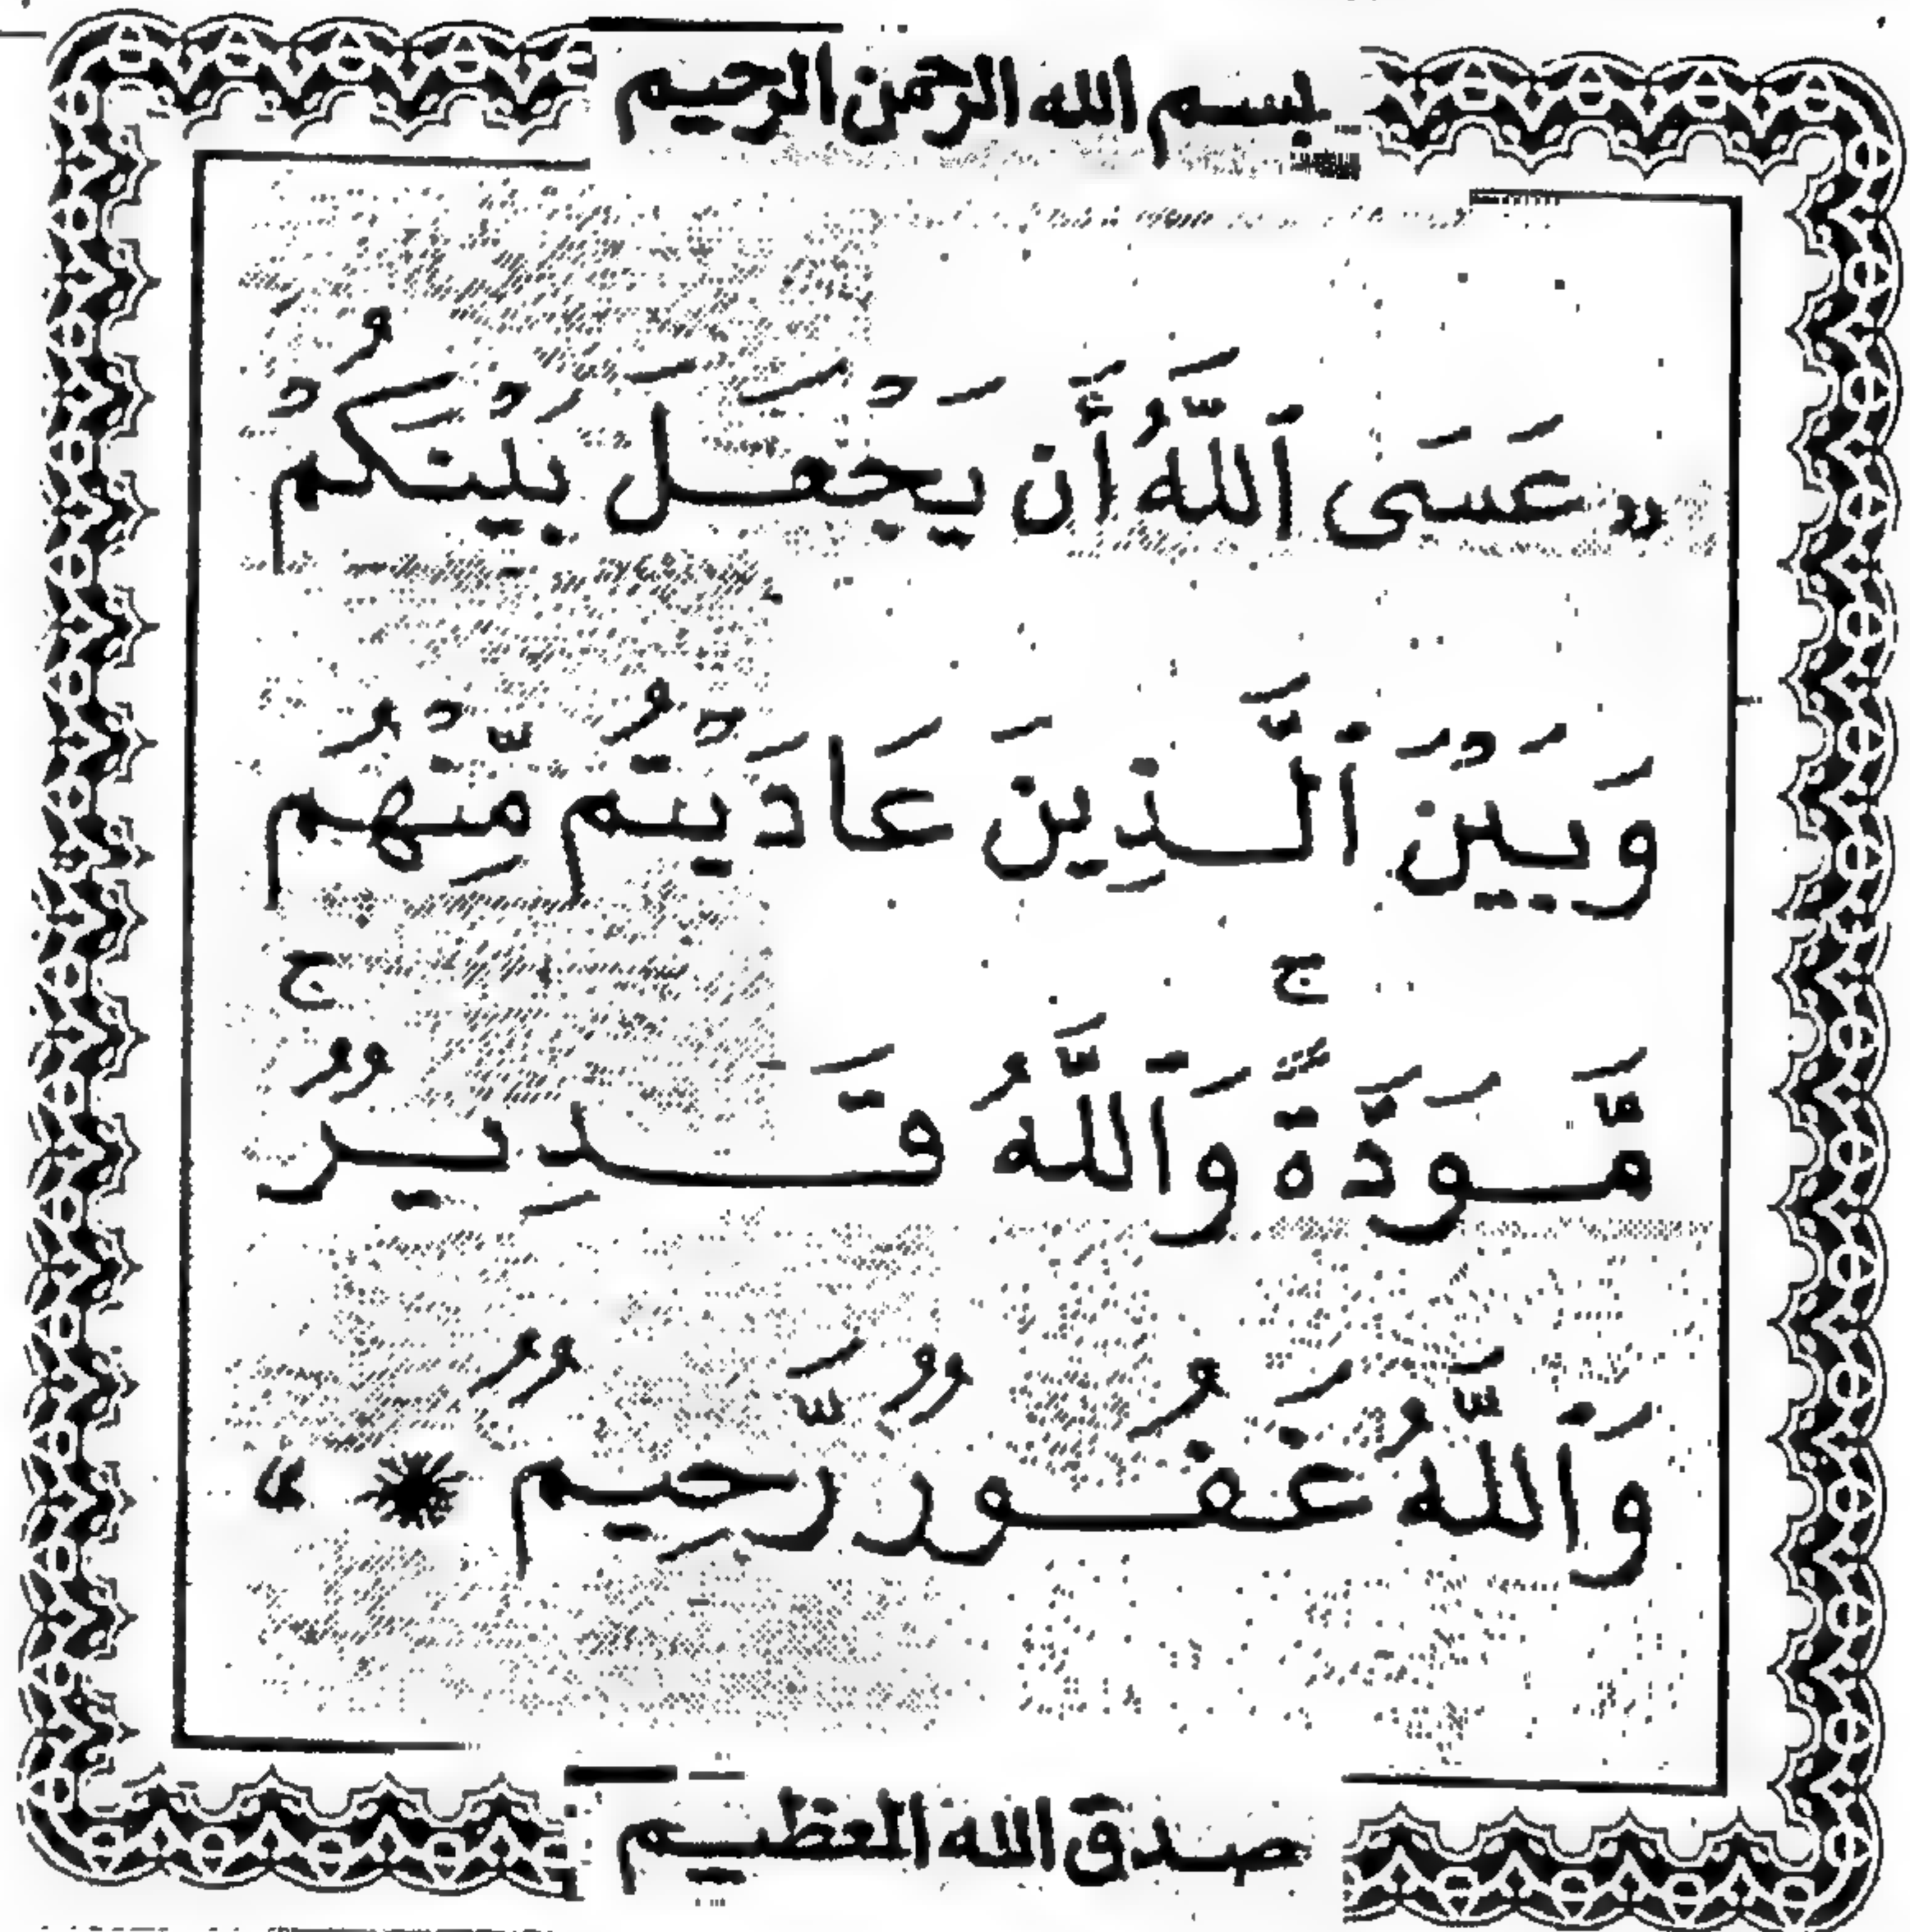 بسم الله الرحمن الرحيم
« عَسَى ٱللَّهُ أَن يَجْعَلَ بَيْنَكُمْ
وَبَيْنَ ٱلَّذِينَ عَادَيْتُم مِّنْهُم
مَّوَدَّةً ۚ وَٱللَّهُ قَدِيرٌ ۚ
وَٱللَّهُ غَفُورٌ رَّحِيمٌ »
صدق الله العظيم